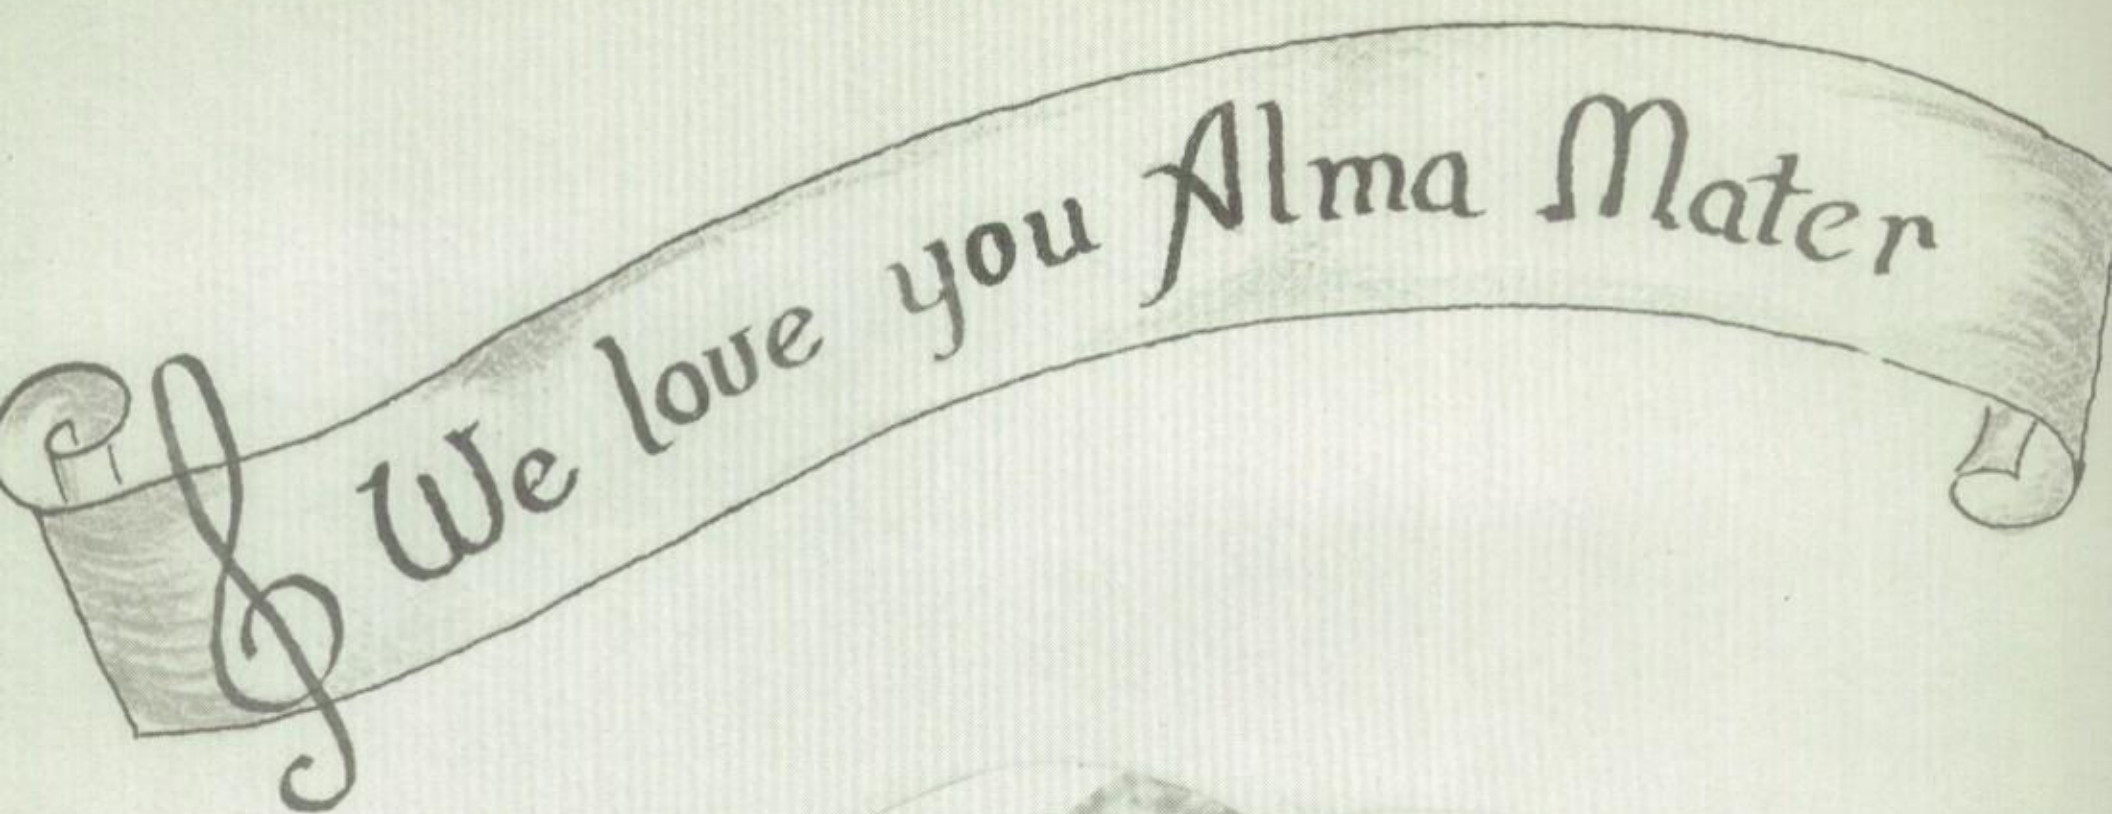 We love you Alma Mater